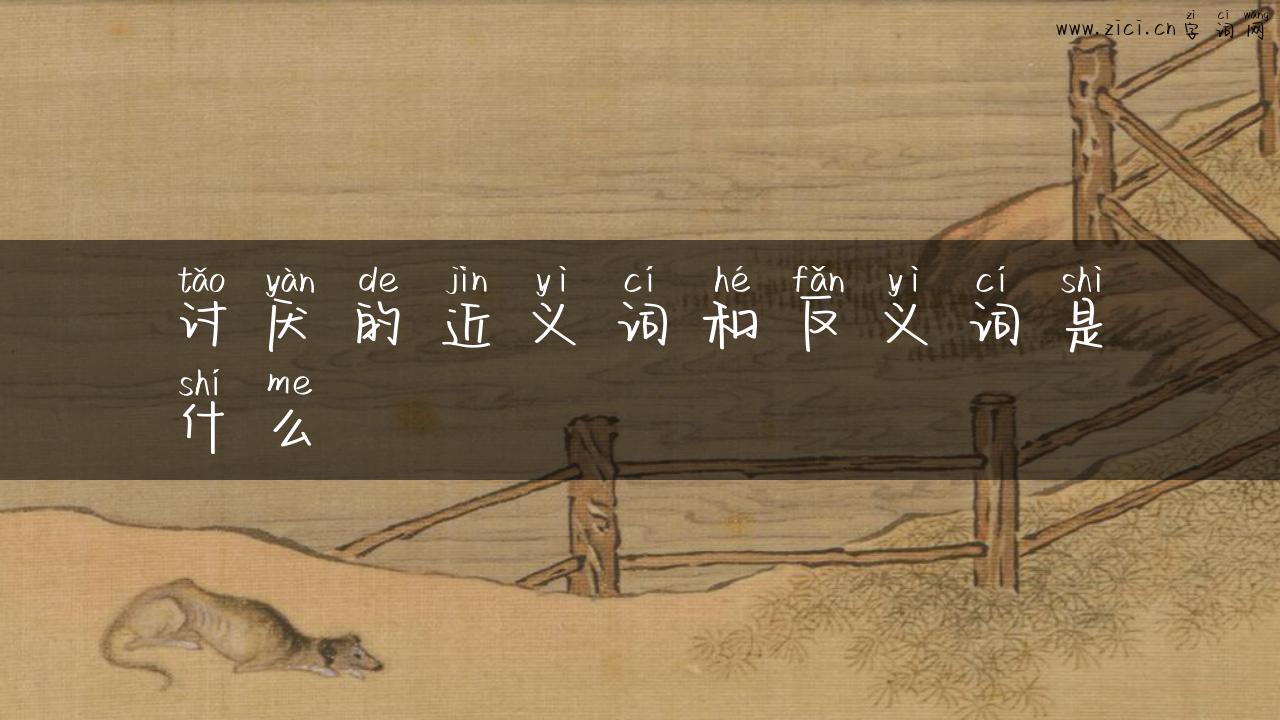 zì cí wǎng
www.zici.cn 字词网
tǎo yàn de jìn yì cí hé fǎn yì cí shì
讨厌的近义词和反义词是
shí me
什么